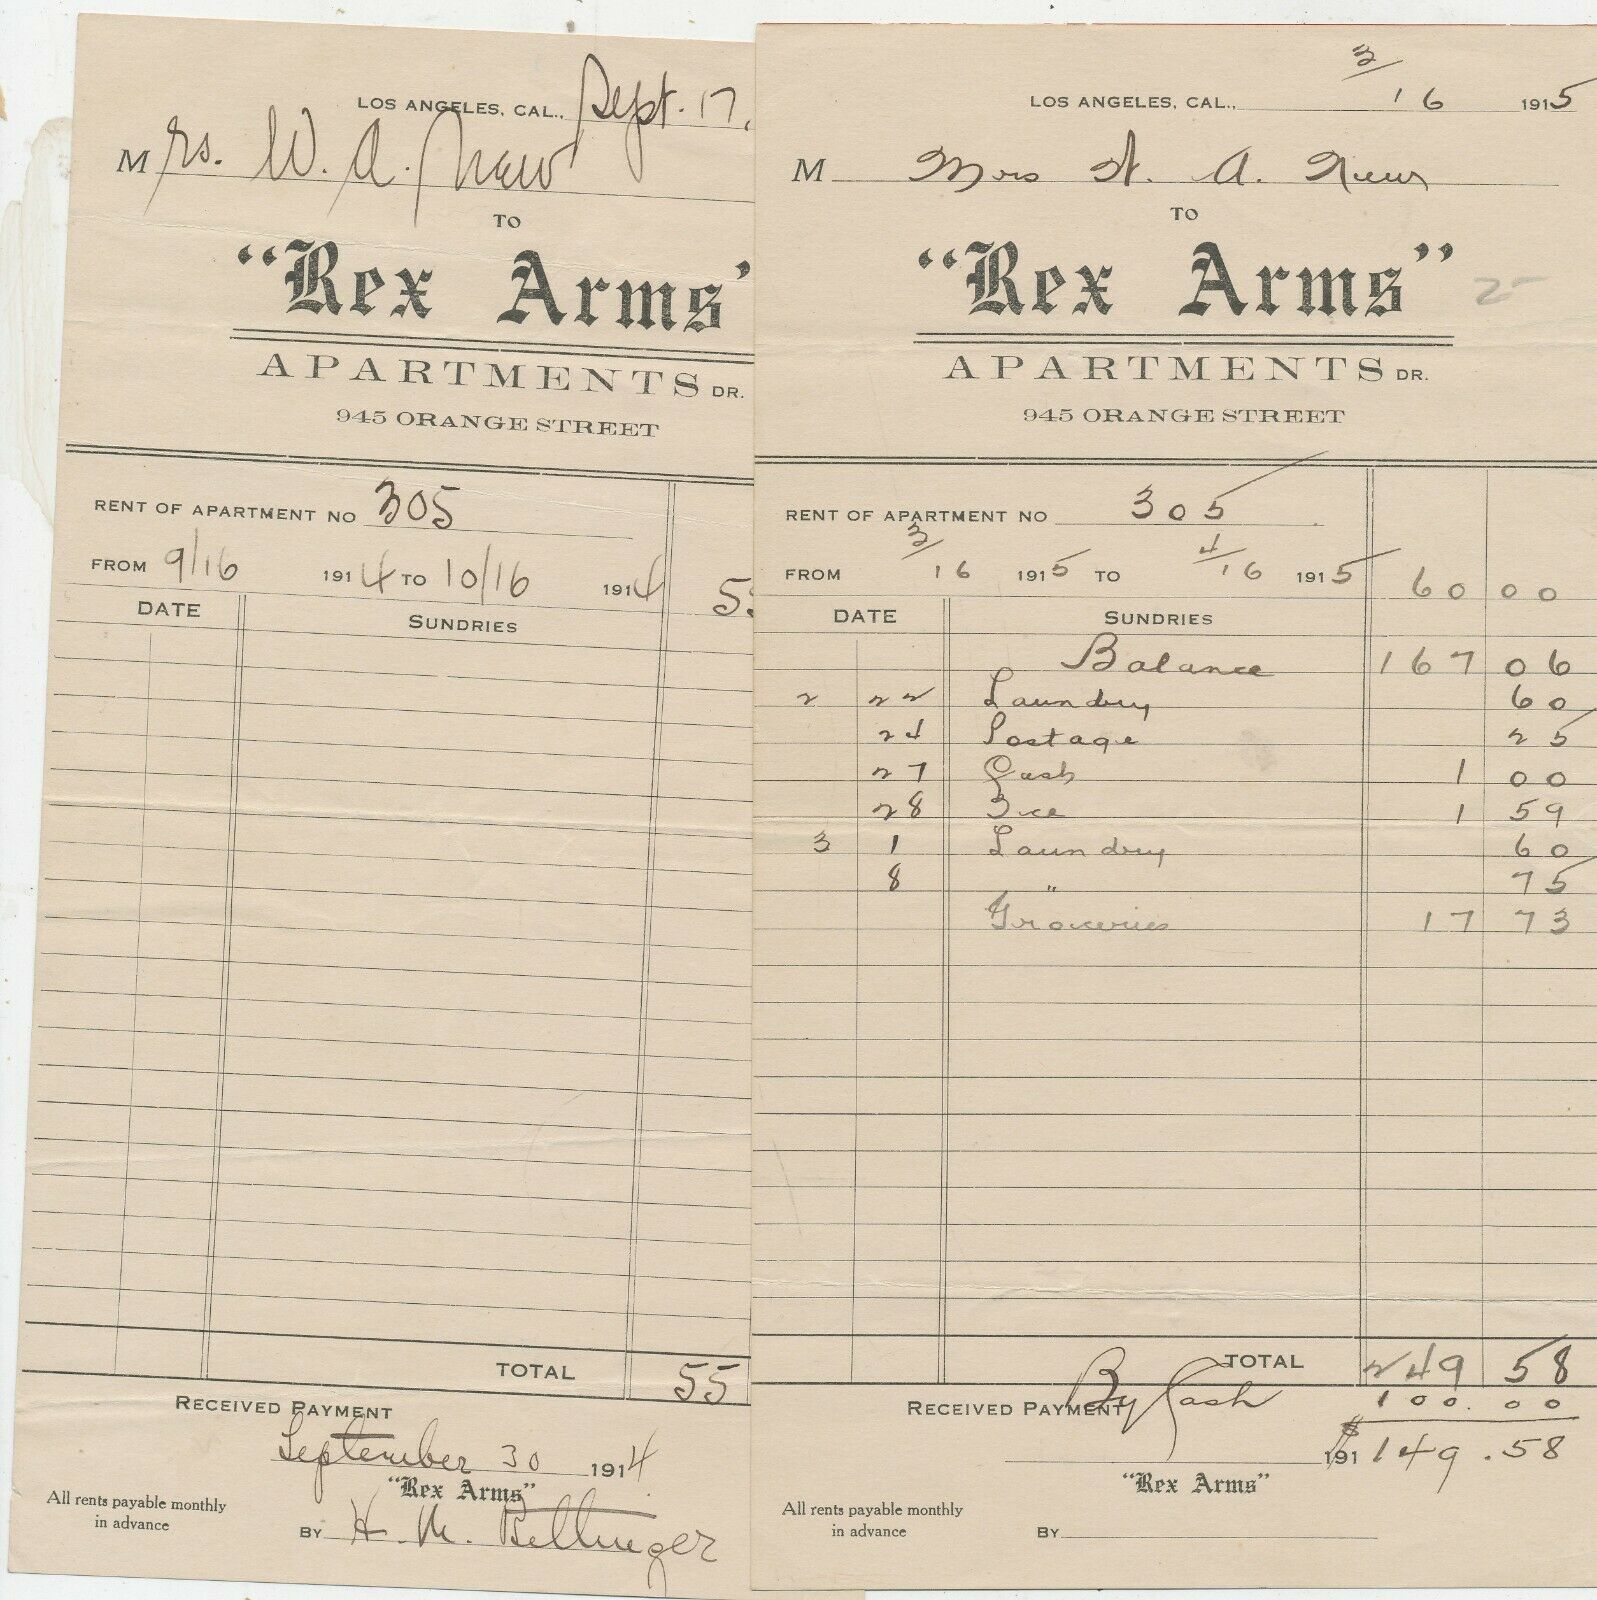 LOS ANGELES, CAL., Sept. 17,
Mrs. W. A.
TO
"Rex Arms'
APARTMENTS DR.
945 ORANGE STREET
RENT OF APARTMENT NO 305
FROM 9/16 1914 TO 10/16 1914 5
DATE SUNDRIES
TOTAL 55
RECEIVED PAYMENT
September 30 1914
"Rex Arms"
All rents payable monthly
in advance
BY H. M. Bellinger
3/16 1915
LOS ANGELES, CAL.,
M Mrs W. A.
TO
"Rex Arms" 25
APARTMENTS DR.
945 ORANGE STREET
RENT OF APARTMENT NO 305
FROM 3/16 1915 TO 4/16 1915 60 00
DATE SUNDRIES
Balance 167 06
2 22 Laundry 60
24 Postage 25
27 Cash 1 00
28 Ice 1 59
3 1 Laundry 60
8 " 75
Groceries 17 73
TOTAL 249 58
RECEIVED PAYMENT By Cash 100.00
191 $149.58
"Rex Arms"
All rents payable monthly
in advance
BY